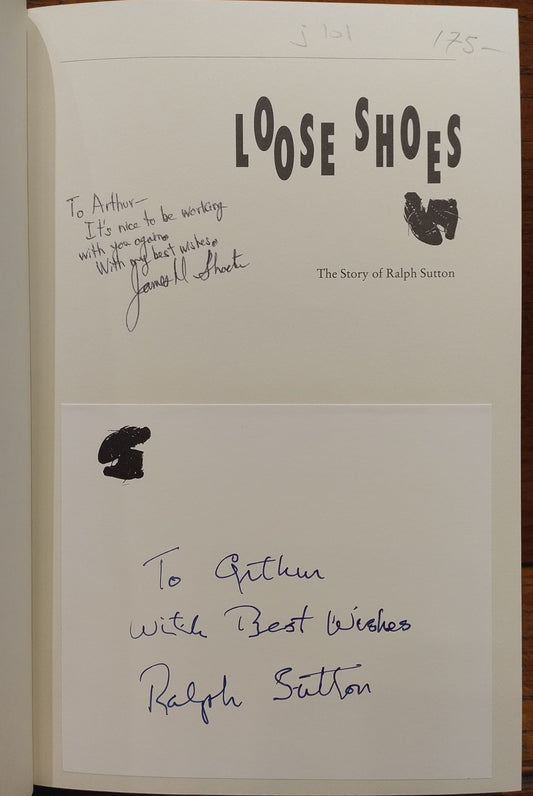 j lol
175-
LOOSE SHOES
The Story of Ralph Sutton
To Arthur—
It's nice to be working
with you again.
With my best wishes.
James D. Shacter
To Arthur
With Best Wishes
Ralph Sutton